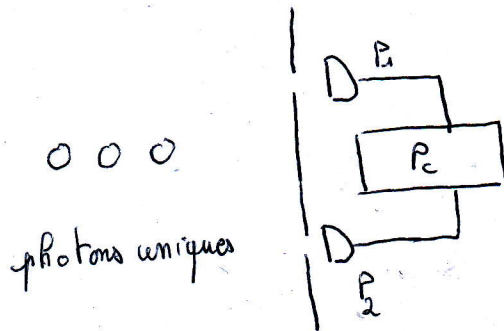 P₁
P_c
photons uniques
P₂